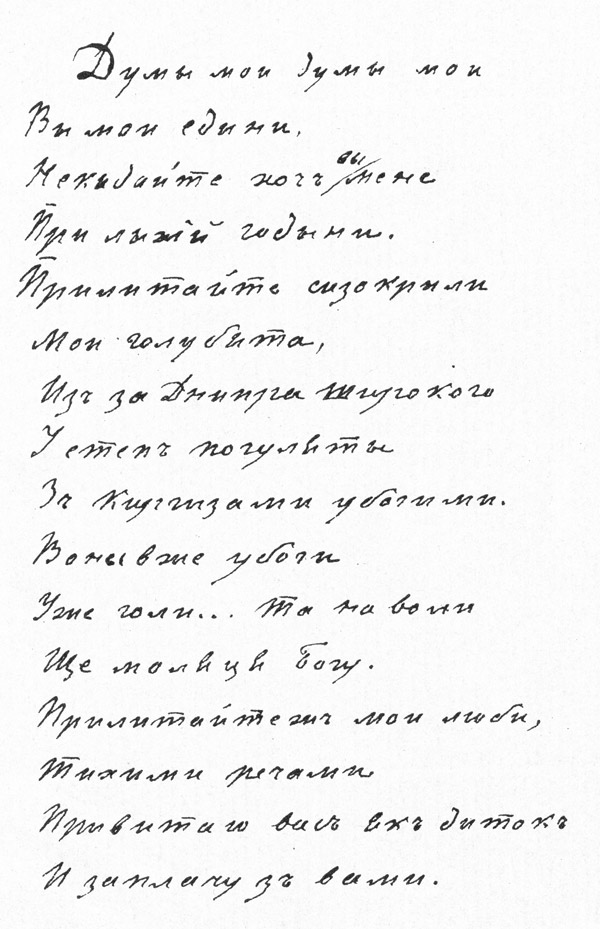 Думы мои думы мои
Вы мои едини,
Некыдайте хочъ вы мене
При лыхій годыни.
Прилитайте сизокрыли
Мои голубята,
Изъ за Днипра широкого
У степъ погуляты
Зъ Киргизами убогими.
Воны вже убоги
Уже голи... Та на воли
Ще моляця Богу.
Прилитайтежъ мои люби,
Тихими речами
Привитаю васъ якъ дитокъ
И заплачу зъ вами.